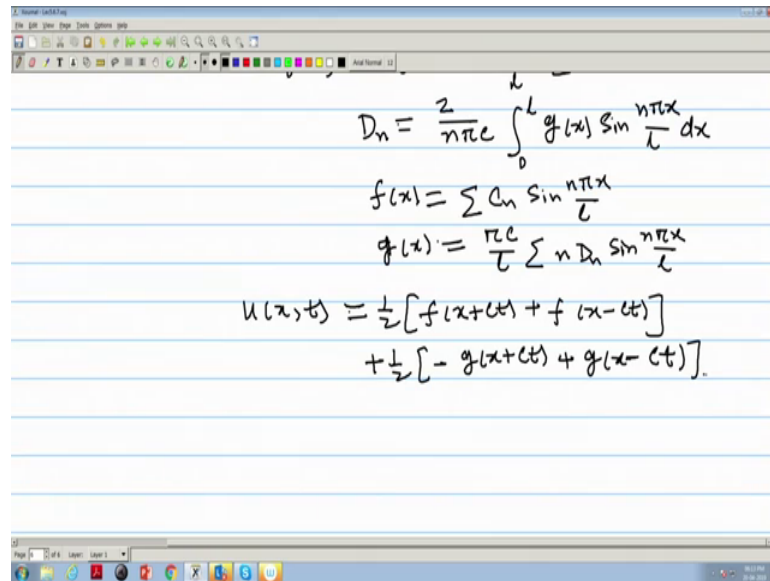 Journal - Lec5.6.7.xoj
File Edit View Page Tools Options Help
Arial Normal 12
l
D_n = 2/(nπc) ∫_0^l g(x) Sin nπx/l dx
f(x) = Σ C_n Sin nπx/l
g(x) = πc/l Σ n D_n Sin nπx/l
u(x,t) = 1/2 [f(x+ct) + f(x-ct)]
+ 1/2 [- g(x+ct) + g(x-ct)].
Page of 6 Layer: Layer 1